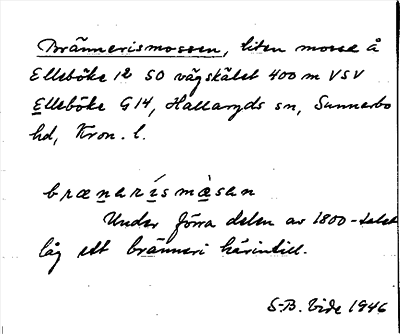 Brännerismossen, liten mosse å
Elleböke 12 SO vägskälet 400 m VSV
Elleböke G14, Hallaryds sn, Sunnerbo
hd, Kron. l.
brænarísmàsan
Under förra delen av 1800-talet
låg ett bränneri härintill.
S-B. Vide 1946